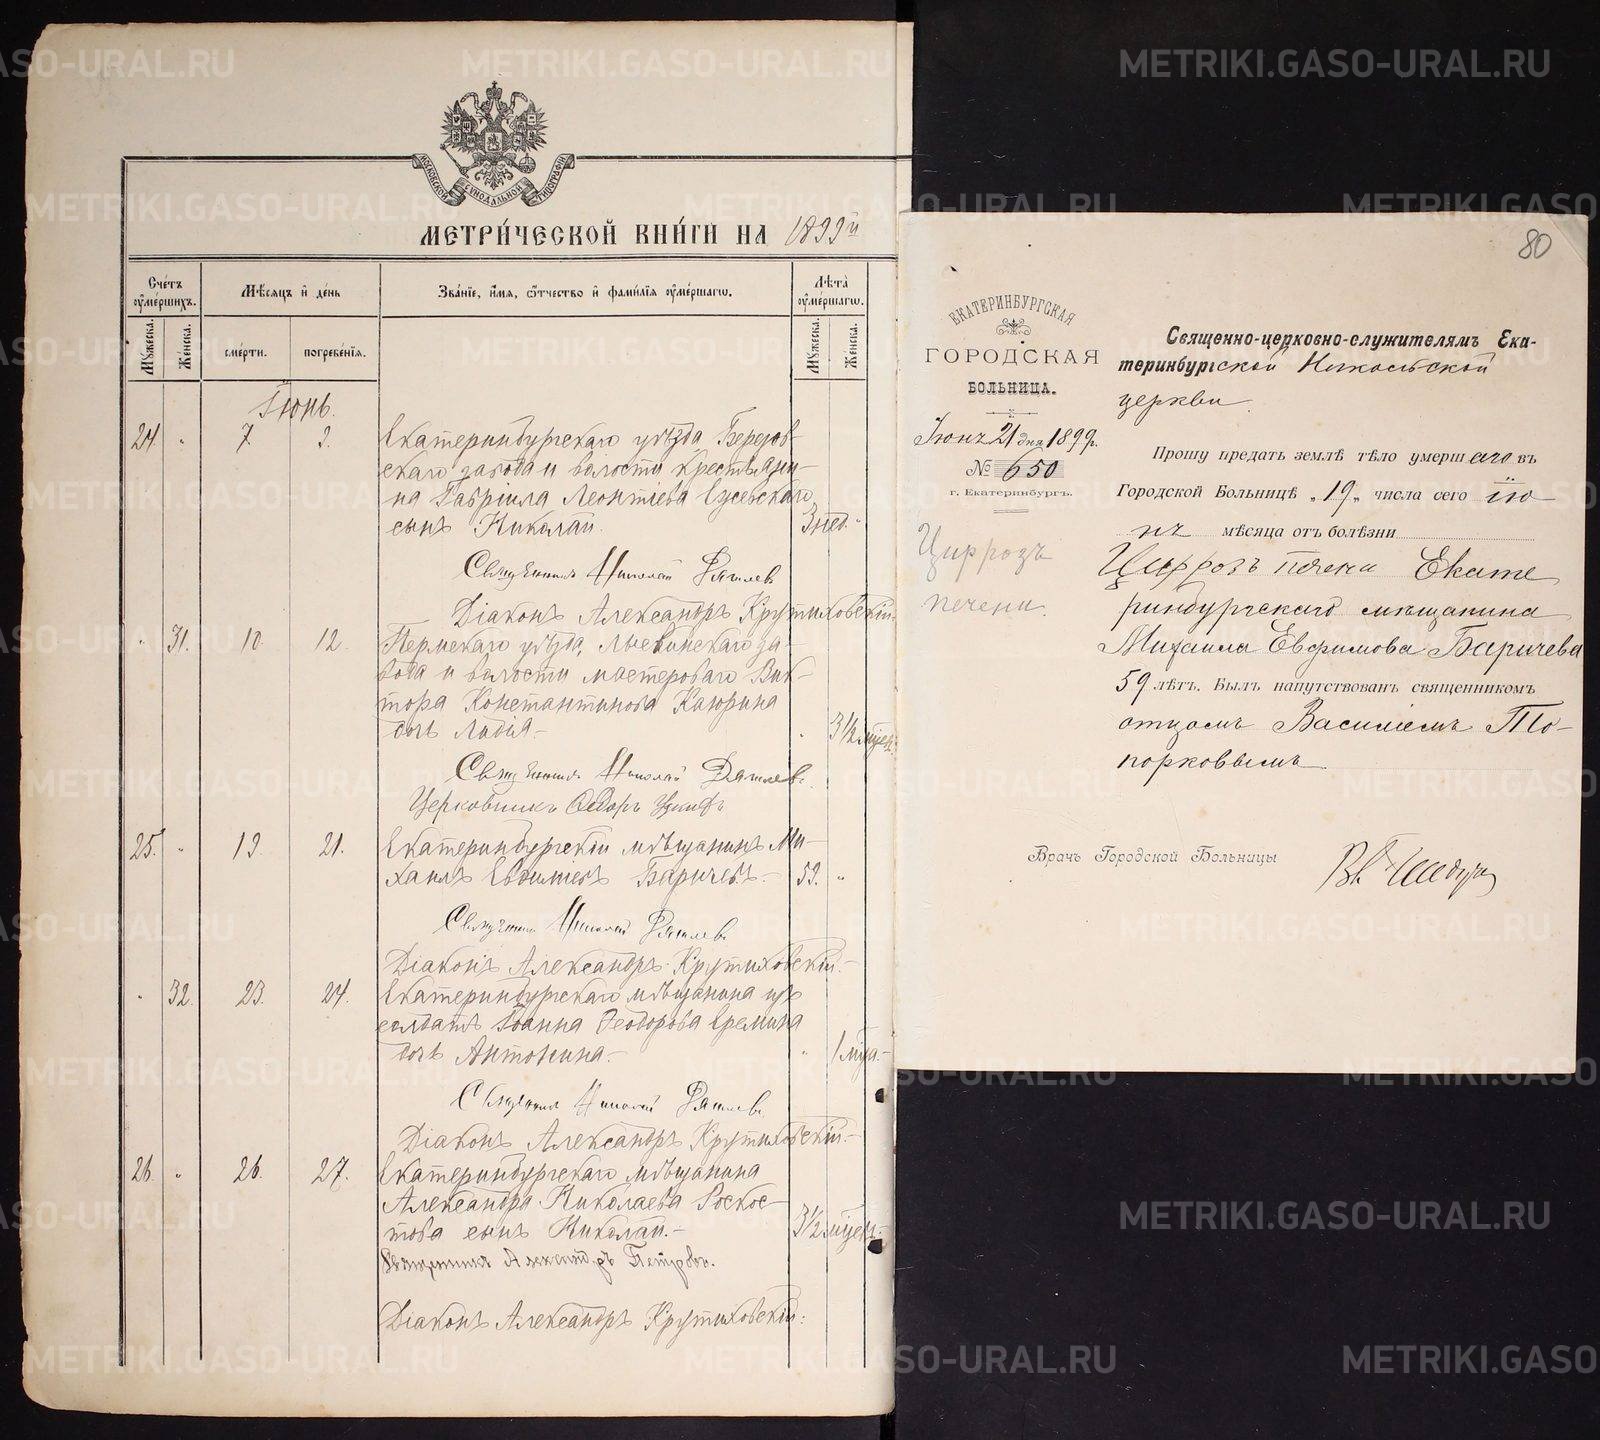 МОСКОВСКОЙ СѴНОДАЛЬНОЙ ТИПОГРАФІИ
МЕТРИ́ЧЕСКОЙ КНИ́ГИ НА 1899й
Сче́тъ ᲂу҆ме́ршихъ.
Мѣ́сяцъ и де́нь
Зва́ніе, и҆́мя, ѻ҆́тчество и҆ фами́лія ᲂу҆ме́ршагѡ.
Лѣта̀ ᲂу҆ме́ршагѡ.
Мꙋ́жеска.
Же́нска.
сме́рти.
погребе́нія.
Мꙋ́жеска.
Же́нска.
Іюнь.
24. " 7 9. Екатеринбургскаго уѣзда, Березов-
скаго завода и волости крестьяни-
на Гавріила Леонтіева
сынъ Николай. 3 нед. "
Священникъ Николай
Діаконъ Александръ Крутиховскій.
" 31. 10. 12. Пермскаго уѣзда, Лысвинскаго за-
вода и волости мастероваго Вик-
тора Константинова Каюрина
дочь Лидія.- " 3½ мѣсяц.
Священникъ Николай
Церковникъ Ѳедоръ
25. " 19. 21. Екатеринбургскій мѣщанинъ Ми-
хаилъ Евфимовъ Баричевъ.- 59. "
Священникъ Николай
Діаконъ Александръ Крутиховскій.-
" 32. 23. 24. Екатеринбургскаго мѣщанина изъ
солдатъ Іоанна Ѳеодорова Еремина
дочь Антонина.- " 1 мѣся.-
Священникъ Николай
Діаконъ Александръ Крутиховскій.-
26. " 26. 27. Екатеринбургскаго мѣщанина
Александра Николаева Роскос-
това сынъ Николай.- 3½ мѣсяц.
Священникъ Александръ Петровъ.
Діаконъ Александръ Крутиховскій.
80
ЕКАТЕРИНБУРГСКАЯ
ГОРОДСКАЯ
БОЛЬНИЦА.
Іюнь 21 дня 1899г.
№ 650
г. Екатеринбургъ.
Циррозъ
печени.
Священно-церковно-служителямъ Ека-
теринбургской Никольской
церкви.
Прошу предать землѣ тѣло умершаго въ
Городской Больницѣ „19„ числа сего ію-
нь мѣсяца отъ болѣзни
Циррозъ печени Екате
ринбургскаго мѣщанина
Михаила Евфимова Баричева
59 лѣтъ. Былъ напутствованъ священникомъ
отцомъ Василіемъ То-
порковымъ
Врачъ Городской Больницы
METRIKI.GASO-URAL.RU